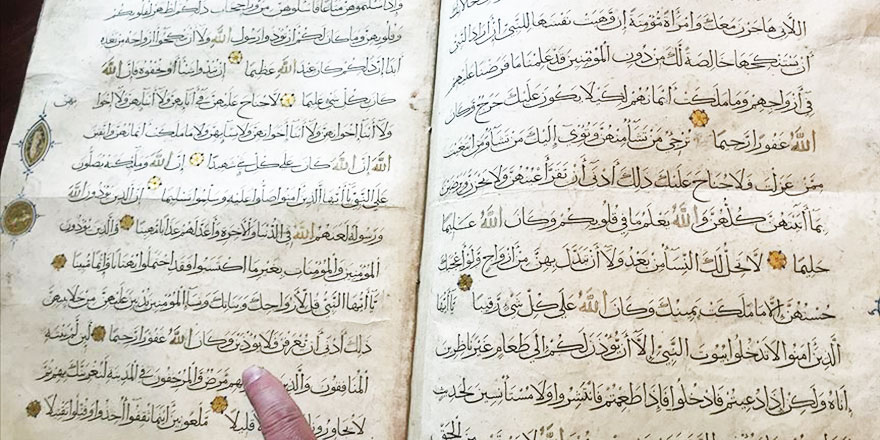 اللاتي هاجرن معك وامرأة مؤمنة إن وهبت نفسها للنبي إن أراد النبي
أن يستنكحها خالصة لك من دون المؤمنين قد علمنا ما فرضنا عليهم
في أزواجهم وما ملكت أيمانهم لكيلا يكون عليك حرج وكان
الله غفورا رحيما ترجي من تشاء منهن وتؤوي إليك من تشاء ومن ابتغيت
ممن عزلت فلا جناح عليك ذلك أدنى أن تقر أعينهن ولا يحزن ويرضين
بما آتيتهن كلهن والله يعلم ما في قلوبكم وكان الله عليما
حليما لا يحل لك النساء من بعد ولا أن تبدل بهن من أزواج ولو أعجبك
حسنهن إلا ما ملكت يمينك وكان الله على كل شيء رقيبا يا أيها
الذين آمنوا لا تدخلوا بيوت النبي إلا أن يؤذن لكم إلى طعام غير ناظرين
إناه ولكن إذا دعيتم فادخلوا فإذا طعمتم فانتشروا ولا مستأنسين لحديث
وإذا سألتموهن متاعا فاسألوهن من وراء حجاب ذلكم أطهر لقلوبكم
وقلوبهن وما كان لكم أن تؤذوا رسول الله ولا أن تنكحوا أزواجه من بعده
أبدا إن ذلكم كان عند الله عظيما إن تبدوا شيئا أو تخفوه فإن الله
كان بكل شيء عليما لا جناح عليهن في آبائهن ولا أبنائهن ولا إخوانهن
ولا أبناء إخوانهن ولا أبناء أخواتهن ولا نسائهن ولا ما ملكت أيمانهن واتقين
الله إن الله كان على كل شيء شهيدا إن الله وملائكته يصلون
على النبي يا أيها الذين آمنوا صلوا عليه وسلموا تسليما إن الذين يؤذون الله
ورسوله لعنهم الله في الدنيا والآخرة وأعد لهم عذابا مهينا والذين يؤذون
المؤمنين والمؤمنات بغير ما اكتسبوا فقد احتملوا بهتانا وإثما مبينا
يا أيها النبي قل لأزواجك وبناتك ونساء المؤمنين يدنين عليهن من جلابيبهن
ذلك أدنى أن يعرفن فلا يؤذين وكان الله غفورا رحيما لئن لم ينته
المنافقون والذين مرض والمرجفون في المدينة لنغرينك بهم ثم
لا يجاورونك قليلا ملعونين أينما ثقفوا أخذوا وقتلوا تقتيلا